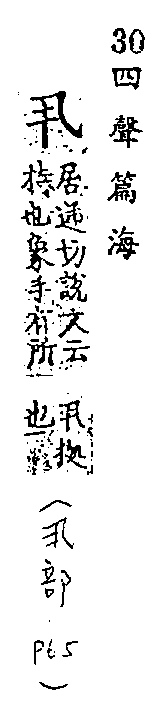 30 四聲篇海
丮
居逆切說文云
持也象手有所
丮拠
也
(丮部 P65)